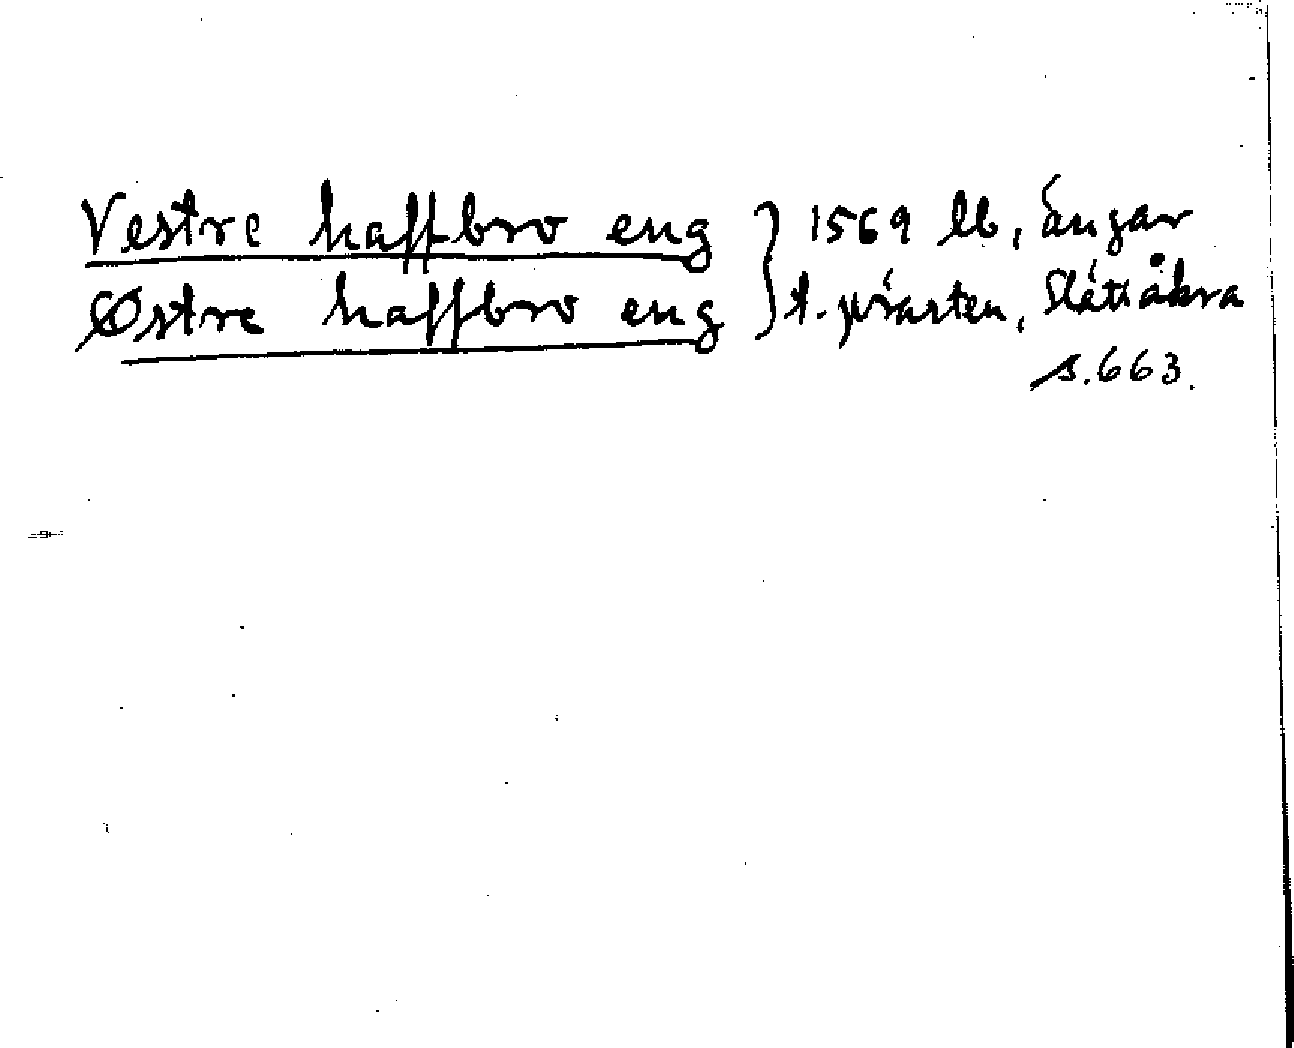 Vestre haffbro eng } 1569 lb, ängar
Østre haffbro eng } t. prästen, Slättåkra
s. 663.